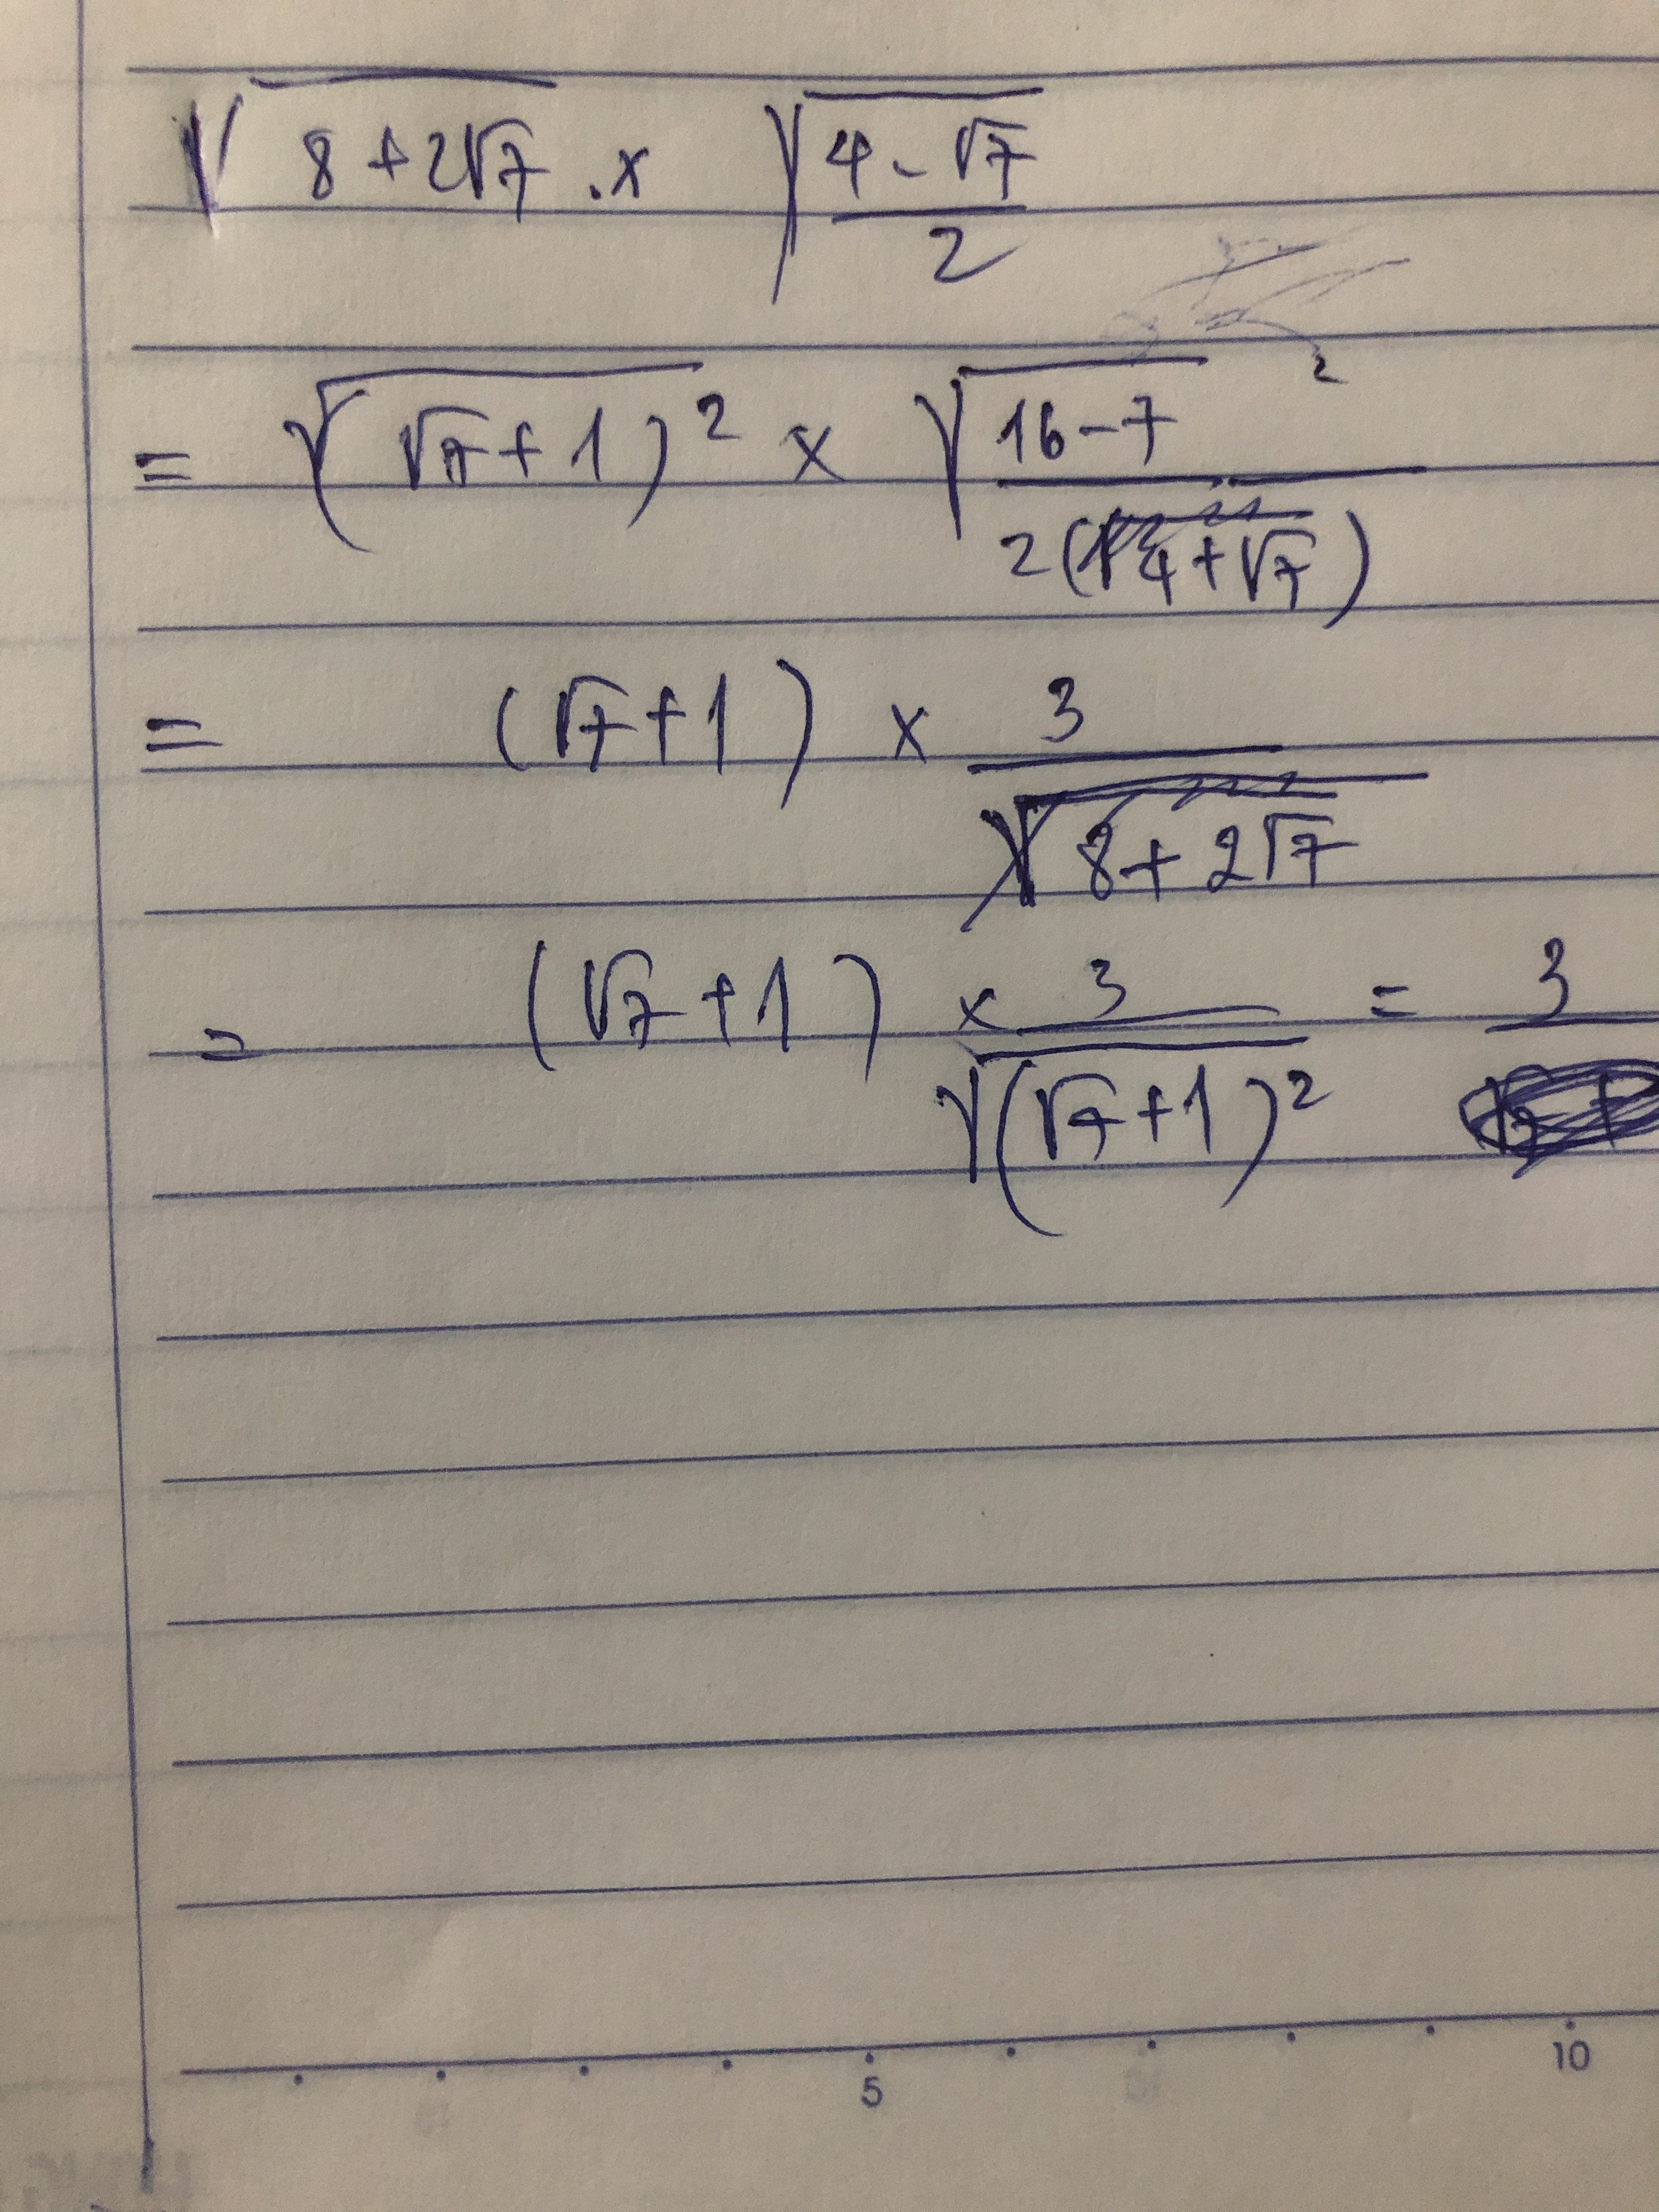 √(8+2√7) . x √((4-√7)/2)
= √(√7+1)² x √((16-7)/(2(4+√7))) ²
= (√7+1) x 3/√(8+2√7)
= (√7+1) x 3/√(√7+1)² = 3
5 10